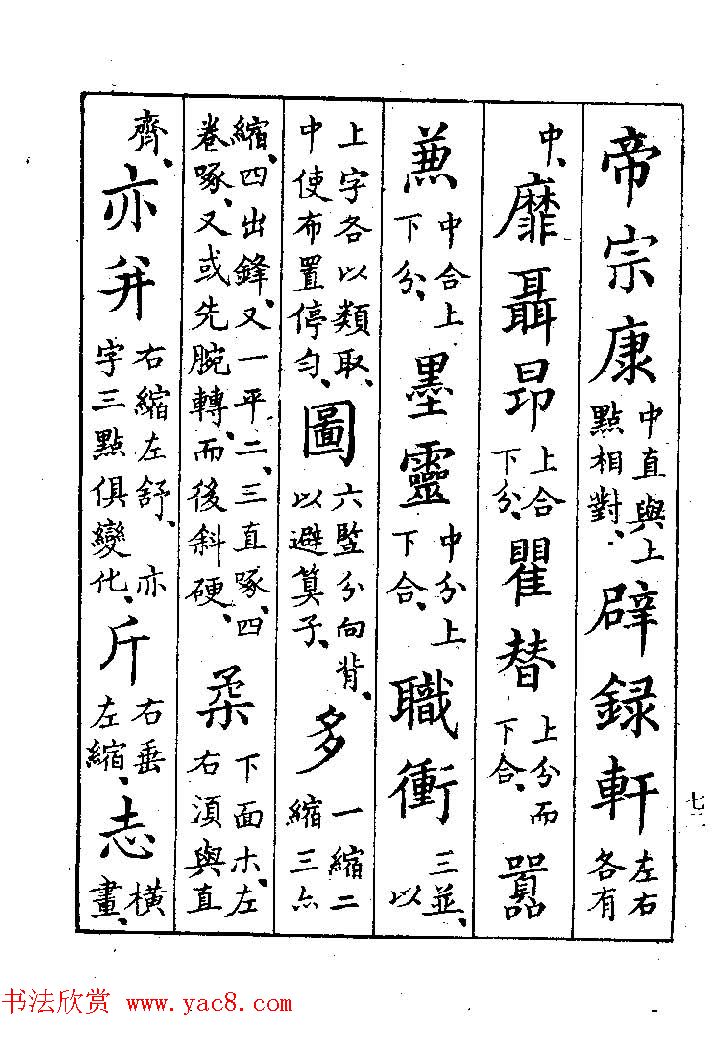 帝宗康中直與上點相對、辟録軒左右各有
中、靡聶昻上合下分、瞿替上分而下合、嚣
兼中合上下分、墨靈中分上下合、職衝三並、以
上字各以類取、中使布置停勻、圖六竪分向背、以避算子、多一縮二縮三亦
縮、四出鋒、又一平二、三直啄、四卷啄、又或先腕轉、而後斜硬、柔下面木、左右須與直
齊、亦并右縮左舒、亦字三點俱變化、斤右垂左縮、志橫畫、
七二
书法欣赏 www.yac8.com